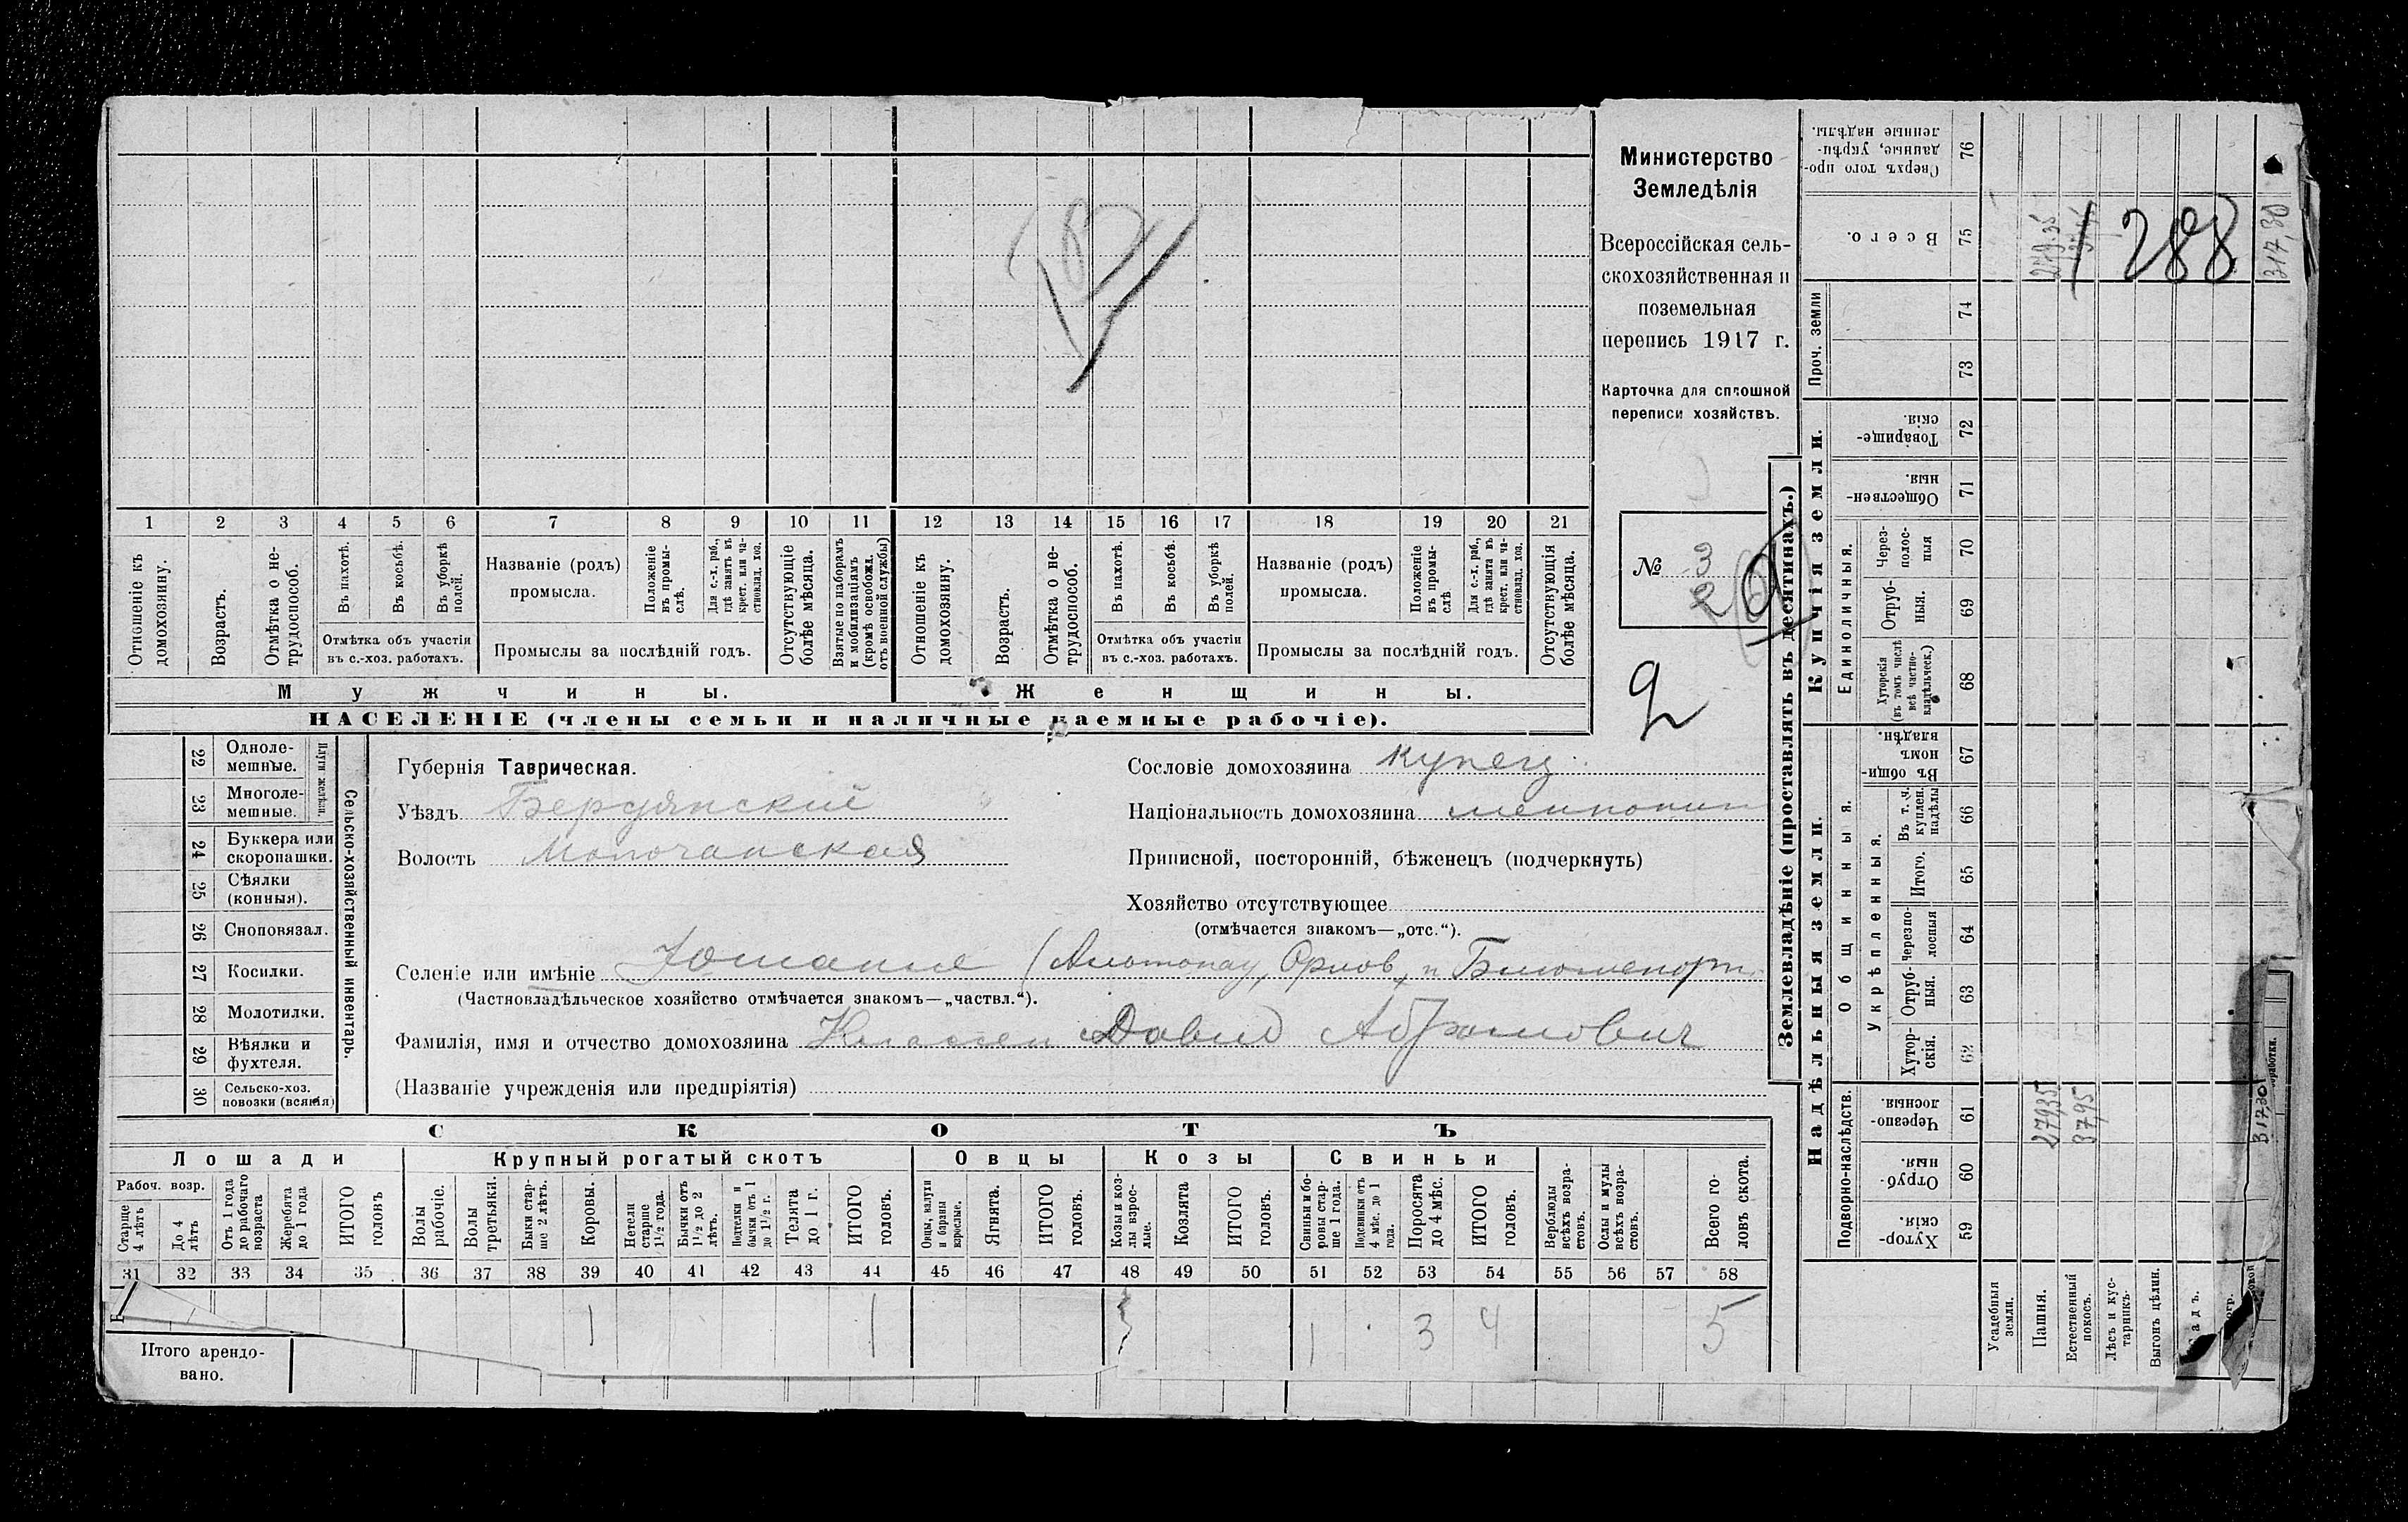 Министерство
Земледѣлія
Всероссійская сель-
скохозяйственная и
поземельная
перепись 1917 г.
Карточка для сплошной
переписи хозяйствъ.
№ 3
2
1 2 3 4 5 6 7 8 9 10 11 12 13 14 15 16 17 18 19 20 21
Отношеніе къ домохозяину.
Возрастъ.
Отмѣтка о не-трудоспособ.
Въ пахотѣ.
Въ косьбѣ.
Въ уборкѣ полей.
Отмѣтка объ участіи
въ с.-хоз. работахъ.
Названіе (родъ)
промысла.
Положеніе въ промы-слѣ.
Для с.-х. раб., гдѣ занятъ въ крест. или ча-стновлад. хоз.
Промыслы за послѣдній годъ.
Отсутствующіе болѣе мѣсяца.
Взятые по наборамъ и мобилизаціямъ (кромѣ освобожд. отъ военной службы)
Отношеніе къ домохозяину.
Возрастъ.
Отмѣтка о не-трудоспособ.
Въ пахотѣ.
Въ косьбѣ.
Въ уборкѣ полей.
Отмѣтка объ участіи
въ с.-хоз. работахъ.
Названіе (родъ)
промысла.
Положеніе въ промы-слѣ
Для с.-х. раб., гдѣ занята въ крест. или ча-стновлад. хоз.
Промыслы за послѣдній годъ.
Отсутствующія болѣе мѣсяца.
Мужчины. Женщины.
НАСЕЛЕНІЕ (члены семьи и наличные наемные рабочіе).
22 Одноле-мешные.
23 Многоле-мешные.
Плуги желѣзн.
24 Буккера или скоропашки.
25 Сѣялки (конныя).
26 Сноповязал.
27 Косилки.
28 Молотилки.
29 Вѣялки и фухтеля.
30 Сельско-хоз. повозки (всякія)
Сельско-хозяйственный инвентарь.
Губернія Таврическая.
Уѣздъ Бердянский
Волость Молочанская
Сословіе домохозяина купец
Національность домохозяина меннонит
Приписной, посторонній, бѣженецъ (подчеркнуть)
Хозяйство отсутствующее
(отмѣчается знакомъ—„отс.“).
Селеніе или имѣніе
(Частновладѣльческое хозяйство отмѣчается знакомъ—„частвл.“).
Фамилія, имя и отчество домохозяина Классен Давид Абрамович
(Названіе учрежденія или предпріятія)
СКОТЪ
Лошади Крупный рогатый скотъ Овцы Козы Свиньи
Рабоч. возр.
Старше 4 лѣтъ
До 4 лѣтъ
Отъ 1 года до рабочаго возраста
Жеребята до 1 года
ИТОГО головъ
Волы рабочіе.
Волы третьяки.
Быки стар-ше 2 лѣтъ.
Коровы.
Нетели старше 1½ года.
Бычки отъ 1½ до 2 лѣтъ.
Подтелки и бычки отъ 1 до 1½ г.
Телята до 1 г.
ИТОГО головъ.
Овцы, валухи и бараны взрослые.
Ягнята.
ИТОГО головъ.
Козы и коз-лы взрос-лые.
Козлята
ИТОГО головъ.
Свиньи и бо-ровы стар-ше 1 года.
Подсвинки отъ 4 мѣс. до 1 года.
Поросята до 4 мѣс.
ИТОГО головъ.
Верблюды всѣхъ возра-стовъ.
Ослы и мулы всѣхъ возра-стовъ.
Всего го-ловъ скота.
31 32 33 34 35 36 37 38 39 40 41 42 43 44 45 46 47 48 49 50 51 52 53 54 55 56 57 58
1 1 1 3 4 5
Итого арендо-
вано.
Землевладѣніе (проставлять въ десятинахъ.)
Надѣльныя земли.
Купчія земли.
Проч. земли
Подворно-наслѣдств.
Общинныя.
Укрѣпленныя.
Единоличныя.
Хутор-скія. 59
Отруб-ныя. 60
Черезпо-лосныя. 61
Хутор-скія. 62
Отруб-ныя. 63
Черезпо-лосныя 64
Итого. 65
Въ т. ч. куплен. надѣлы 66
Въ общин-номъ владѣн. 67
Хуторскія (въ томъ числѣ всѣ частно-владѣльческ.) 68
Отруб-ныя. 69
Через-полос-ныя 70
Обществен-ныя. 71
Товарище-скія. 72
73
74
Всего. 75
Сверхъ того про-данные, укрѣп-ленные надѣлы. 76
Усадебныя земли.
Пашня.
Естественный покосъ.
Лѣсъ и кус-тарникъ.
Выгонъ цѣлин.
279,35
37,95
317,30
279,35
288
317,30